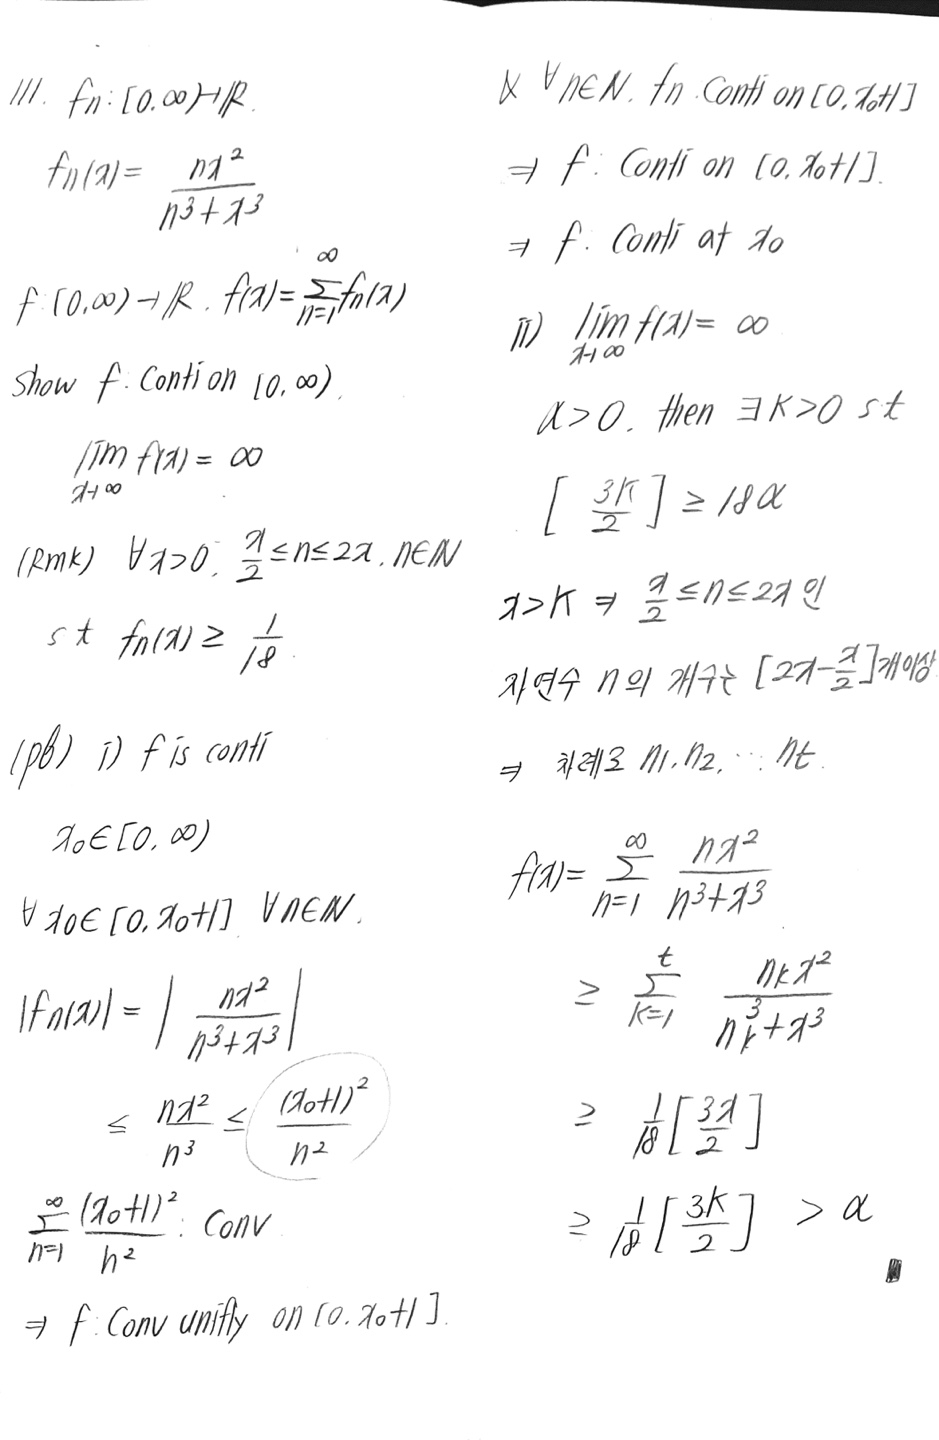 111. fn : [0.∞)→ℝ.
fn(x) = nx² / (n³+x³)
f : [0,∞)→ℝ. f(x) = ∑_{n=1}^{∞} fn(x)
Show f : Conti on [0,∞).
lim_{x→∞} f(x) = ∞
(Rmk) ∀x>0, x/2 ≤ n ≤ 2x, n∈ℕ
s t fn(x) ≥ 1/18.
(pf) i) f is conti
x₀∈[0,∞)
∀x₀∈[0,x₀+1] ∀n∈ℕ.
|fn(x)| = | nx² / (n³+x³) |
≤ nx² / n³ ≤ (x₀+1)² / n²
∑_{n=1}^{∞} (x₀+1)² / n² : Conv
⇒ f : Conv unifly on [0.x₀+1].
& ∀n∈N. fn Conti on [0,x₀+1]
⇒ f : Conti on [0.x₀+1].
⇒ f : Conti at x₀
ii) lim_{x→∞} f(x) = ∞
α>0. then ∃K>0 s t
[ 3K/2 ] ≥ 18α
x>K ⇒ x/2 ≤ n ≤ 2x 인
자연수 n의 개수는 [2x-x/2]개이상
⇒ 차례로 n₁, n₂, ⋯, nt.
f(x) = ∑_{n=1}^{∞} nx² / (n³+x³)
≥ ∑_{k=1}^{t} n_k x² / (n_k³+x³)
≥ 1/18 [ 3x/2 ]
≥ 1/18 [ 3K/2 ] > α